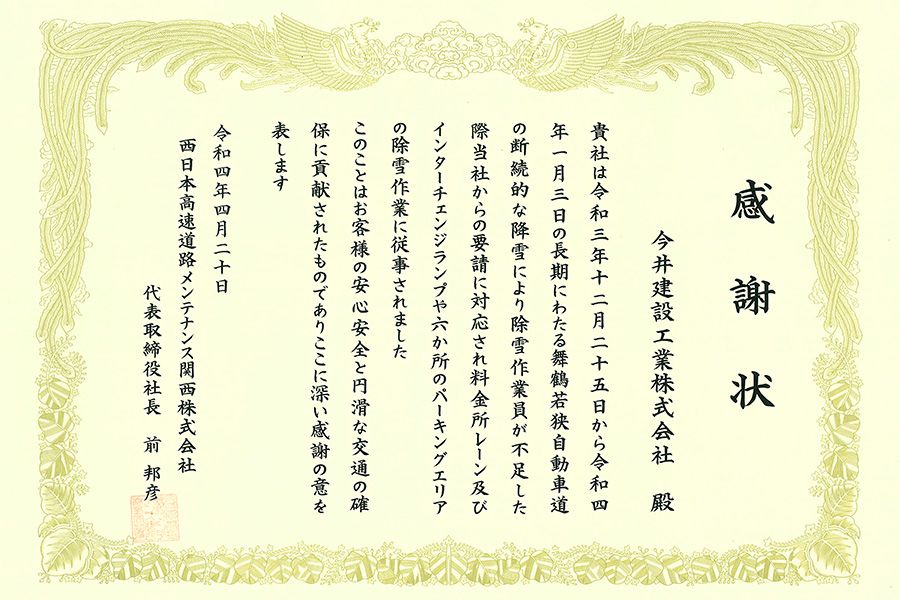 感謝状
今井建設工業株式会社 殿
貴社は令和三年十二月二十五日から令和四
年一月三日の長期にわたる舞鶴若狭自動車道
の断続的な降雪により除雪作業員が不足した
際当社からの要請に対応され料金所レーン及び
インターチェンジランプや六か所のパーキングエリア
の除雪作業に従事されました
このことはお客様の安心安全と円滑な交通の確
保に貢献されたものでありここに深い感謝の意を
表します
令和四年四月二十日
西日本高速道路メンテナンス関西株式会社
代表取締役社長 前 邦彦